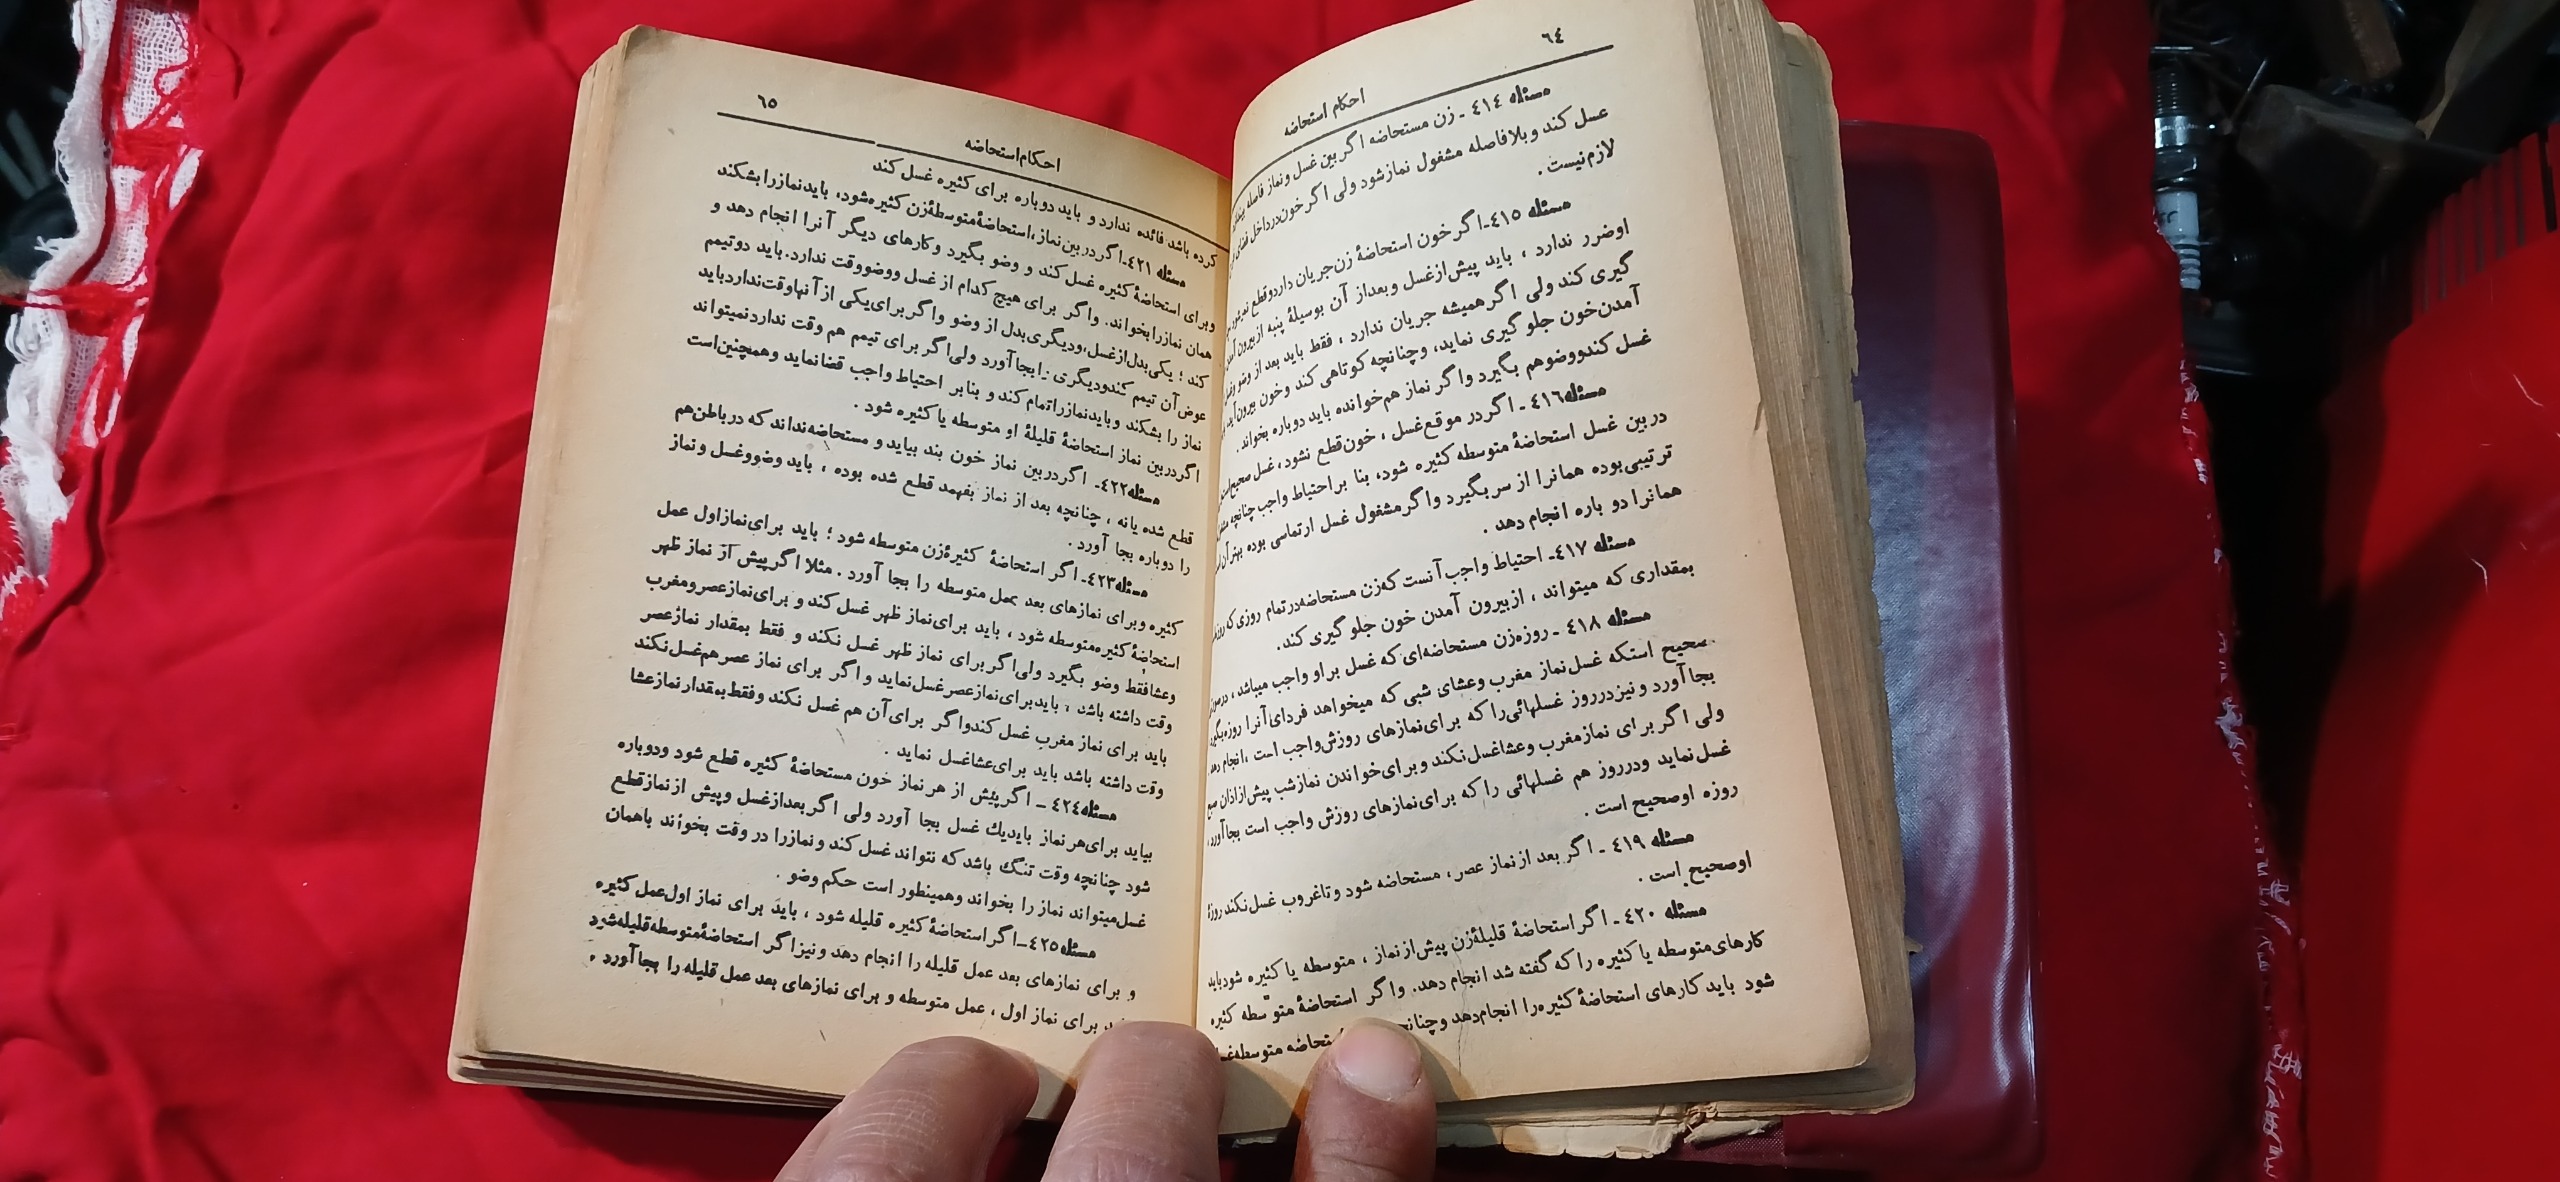 ٦٤
احکام استحاضه
مسئله ٤١٤ ـ زن مستحاضه اگر بین غسل و نماز فاصله
غسل کند و بلافاصله مشغول نماز شود ولی اگر خون در داخل فضای
لازم نیست .
مسئله ٤١٥ـ اگر خون استحاضهٔ زن جریان دارد و قطع نمیشود
او ضرر ندارد ، باید پیش از غسل و بعد از آن بوسیلهٔ پنبه از بیرون آمدن
گیری کند ولی اگر همیشه جریان ندارد ، فقط باید بعد از وضو و غسل
آمدن خون جلو گیری نماید، و چنانچه کوتاهی کند و خون بیرون آید،
غسل کند و وضو هم بگیرد و اگر نماز هم خوانده باید دو باره بخواند .
مسئله ٤١٦ـ اگر در موقع غسل ، خون قطع نشود ، غسل صحیح است
در بین غسل استحاضهٔ متوسطه کثیره شود، بنا بر احتیاط واجب چنانچه
ترتیبی بوده همانرا از سر بگیرد و اگر مشغول غسل ارتماسی بوده بهتر آن
همانرا دو باره انجام دهد .
مسئله ٤١٧ـ احتیاط واجب آنست که زن مستحاضه در تمام روزی که
بمقداری که میتواند ، از بیرون آمدن خون جلو گیری کند .
مسئله ٤١٨ ـ روزه زن مستحاضه‌ای که غسل بر او واجب میباشد ،
صحیح استکه غسل نماز مغرب و عشای شبی که میخواهد فردای آنرا روزه بگیرد
بجا آورد و نیز در روز غسلهائی را که برای نمازهای روزش واجب است ، انجام دهد
ولی اگر برای نماز مغرب و عشا غسل نکند و برای خواندن نماز شب پیش از اذان صبح
غسل نماید و در روز هم غسلهائی را که برای نمازهای روزش واجب است بجا آورد ،
روزه او صحیح است .
مسئله ٤١٩ ـ اگر بعد از نماز عصر ، مستحاضه شود و تا غروب غسل نکند روزهٔ
او صحیح است .
مسئله ٤٢٠ ـ اگر استحاضهٔ قلیلهٔ زن پیش از نماز ، متوسطه یا کثیره شود باید
کارهای متوسطه یا کثیره را که گفته شد انجام دهد. و اگر استحاضهٔ متوسطه کثیره
شود باید کارهای استحاضهٔ کثیره را انجام دهد و استحاضه متوسطه
٦٥
احکام استحاضه
کرده باشد فائده ندارد و باید دوباره برای کثیره غسل کند
مسئله ٤٢١ـ اگر در بین نماز ، استحاضهٔ متوسطهٔ زن کثیره شود، باید نماز را بشکند
و برای استحاضهٔ کثیره غسل کند و وضو بگیرد و کارهای دیگر آنرا انجام دهد و
همان نماز را بخواند. و اگر برای هیچ کدام از غسل و وضو وقت ندارد. باید دو تیمم
کند ؛ یکی بدل از غسل، و دیگری بدل از وضو و اگر برای یکی از آنها وقت ندارد باید
عوض آن تیمم کند و دیگری را بجا آورد ولی اگر برای تیمم هم وقت ندارد نمیتواند
نماز را بشکند و باید نماز را تمام کند و بنا بر احتیاط واجب قضا نماید و همچنین است
اگر در بین نماز استحاضهٔ قلیلهٔ او متوسطه یا کثیره شود .
مسئله ٤٢٢ـ اگر در بین نماز خون بند بیاید و مستحاضه نداند که در باطن هم
قطع شده یا نه ، چنانچه بعد از نماز بفهمد قطع شده بوده ، باید وضو و غسل و نماز
را دوباره بجا آورد .
مسئله ٤٢٣ـ اگر استحاضهٔ کثیرهٔ زن متوسطه شود ؛ باید برای نماز اول عمل
کثیره و برای نمازهای بعد عمل متوسطه را بجا آورد . مثلا اگر پیش از نماز ظهر
استحاضهٔ کثیره متوسطه شود ، باید برای نماز ظهر غسل کند و برای نماز عصر و مغرب
و عشا فقط وضو بگیرد ولی اگر برای نماز ظهر غسل نکند و فقط بمقدار نماز عصر
وقت داشته باشد ، باید برای نماز عصر غسل نماید و اگر برای نماز عصر هم غسل نکند
باید برای نماز مغرب غسل کند و اگر برای آن هم غسل نکند و فقط بمقدار نماز عشا
وقت داشته باشد باید برای عشا غسل نماید .
مسئله ٤٢٤ ـ اگر پیش از هر نماز خون مستحاضهٔ کثیره قطع شود و دوباره
بیاید برای هر نماز باید یك غسل بجا آورد ولی اگر بعد از غسل و پیش از نماز قطع
شود چنانچه وقت تنگ باشد که نتواند غسل کند و نماز را در وقت بخواند با همان
غسل میتواند نماز را بخواند و همینطور است حکم وضو .
مسئله ٤٢٥ـ اگر استحاضهٔ کثیره قلیله شود ، باید برای نماز اول عمل کثیره
و برای نمازهای بعد عمل قلیله را انجام دهد و نیز اگر استحاضهٔ متوسطه قلیله شود
برای نماز اول ، عمل متوسطه و برای نمازهای بعد عمل قلیله را بجا آورد .